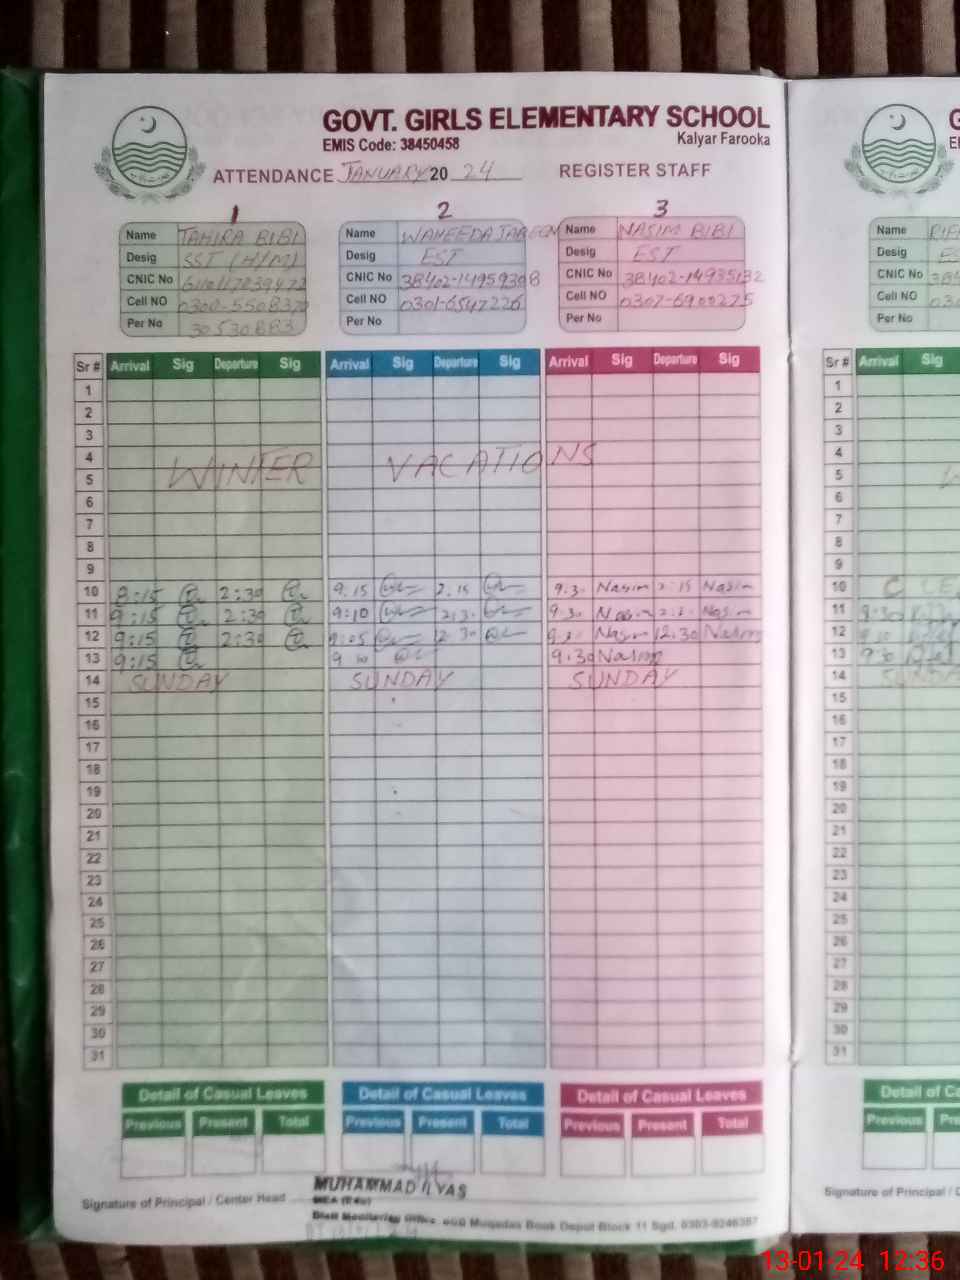 GOVT. GIRLS ELEMENTARY SCHOOL
EMIS Code: 38450458 Kalyar Farooka
ATTENDANCE JANUARY 20 24 REGISTER STAFF
1 2 3
Name TAHIRA BIBI Name WAHEEDA JABEEN Name NASIM BIBI
Desig SST (H/M) Desig EST Desig EST
CNIC No CNIC No CNIC No 38402-14935132
Cell NO 0300-5508370 Cell NO 0301-6547226 Cell NO 0307-6900275
Per No 30530883 Per No Per No
Sr # Arrival Sig Departure Sig Arrival Sig Departure Sig Arrival Sig Departure Sig Sr # Arrival Sig
1 1
2 2
3 3
4 4
WINTER VACATIONS
5 5
6 6
7 7
8 8
9 9
10 8:15 2:30 9:15 2.15 9:3. Nasim 2:15 Nasim 10
11 9:15 2:30 9:10 2:3. 9:3. Nasim Nasim 11 9:30
12 9:15 2:30 9:05 2:30 Nasim 12:30 Nasim 12
13 9:15 9.30 Nasim 13
14 SUNDAY SUNDAY SUNDAY 14 SUNDA
15 15
16 16
17 17
18 18
19 19
20 20
21 21
22 22
23 23
24 24
25 25
26 26
27 27
28 28
29 29
30 30
31 31
Detail of Casual Leaves Detail of Casual Leaves Detail of Casual Leaves Detail of Ca
Previous Present Total Previous Present Total Previous Present Total Previous Pre
Signature of Principal / Center Head Signature of Principal / C
MUHAMMAD ILYAS
Muqadas Book Depot Block 11 Sgd. 0303-9246387
13-01-24 12:36